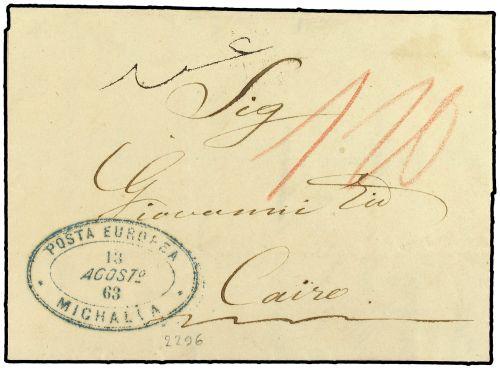 Sig
120
Giovanni Eid
Cairo.
POSTA EUROPEA
13
AGOSTº
63
MICHALLA
2296